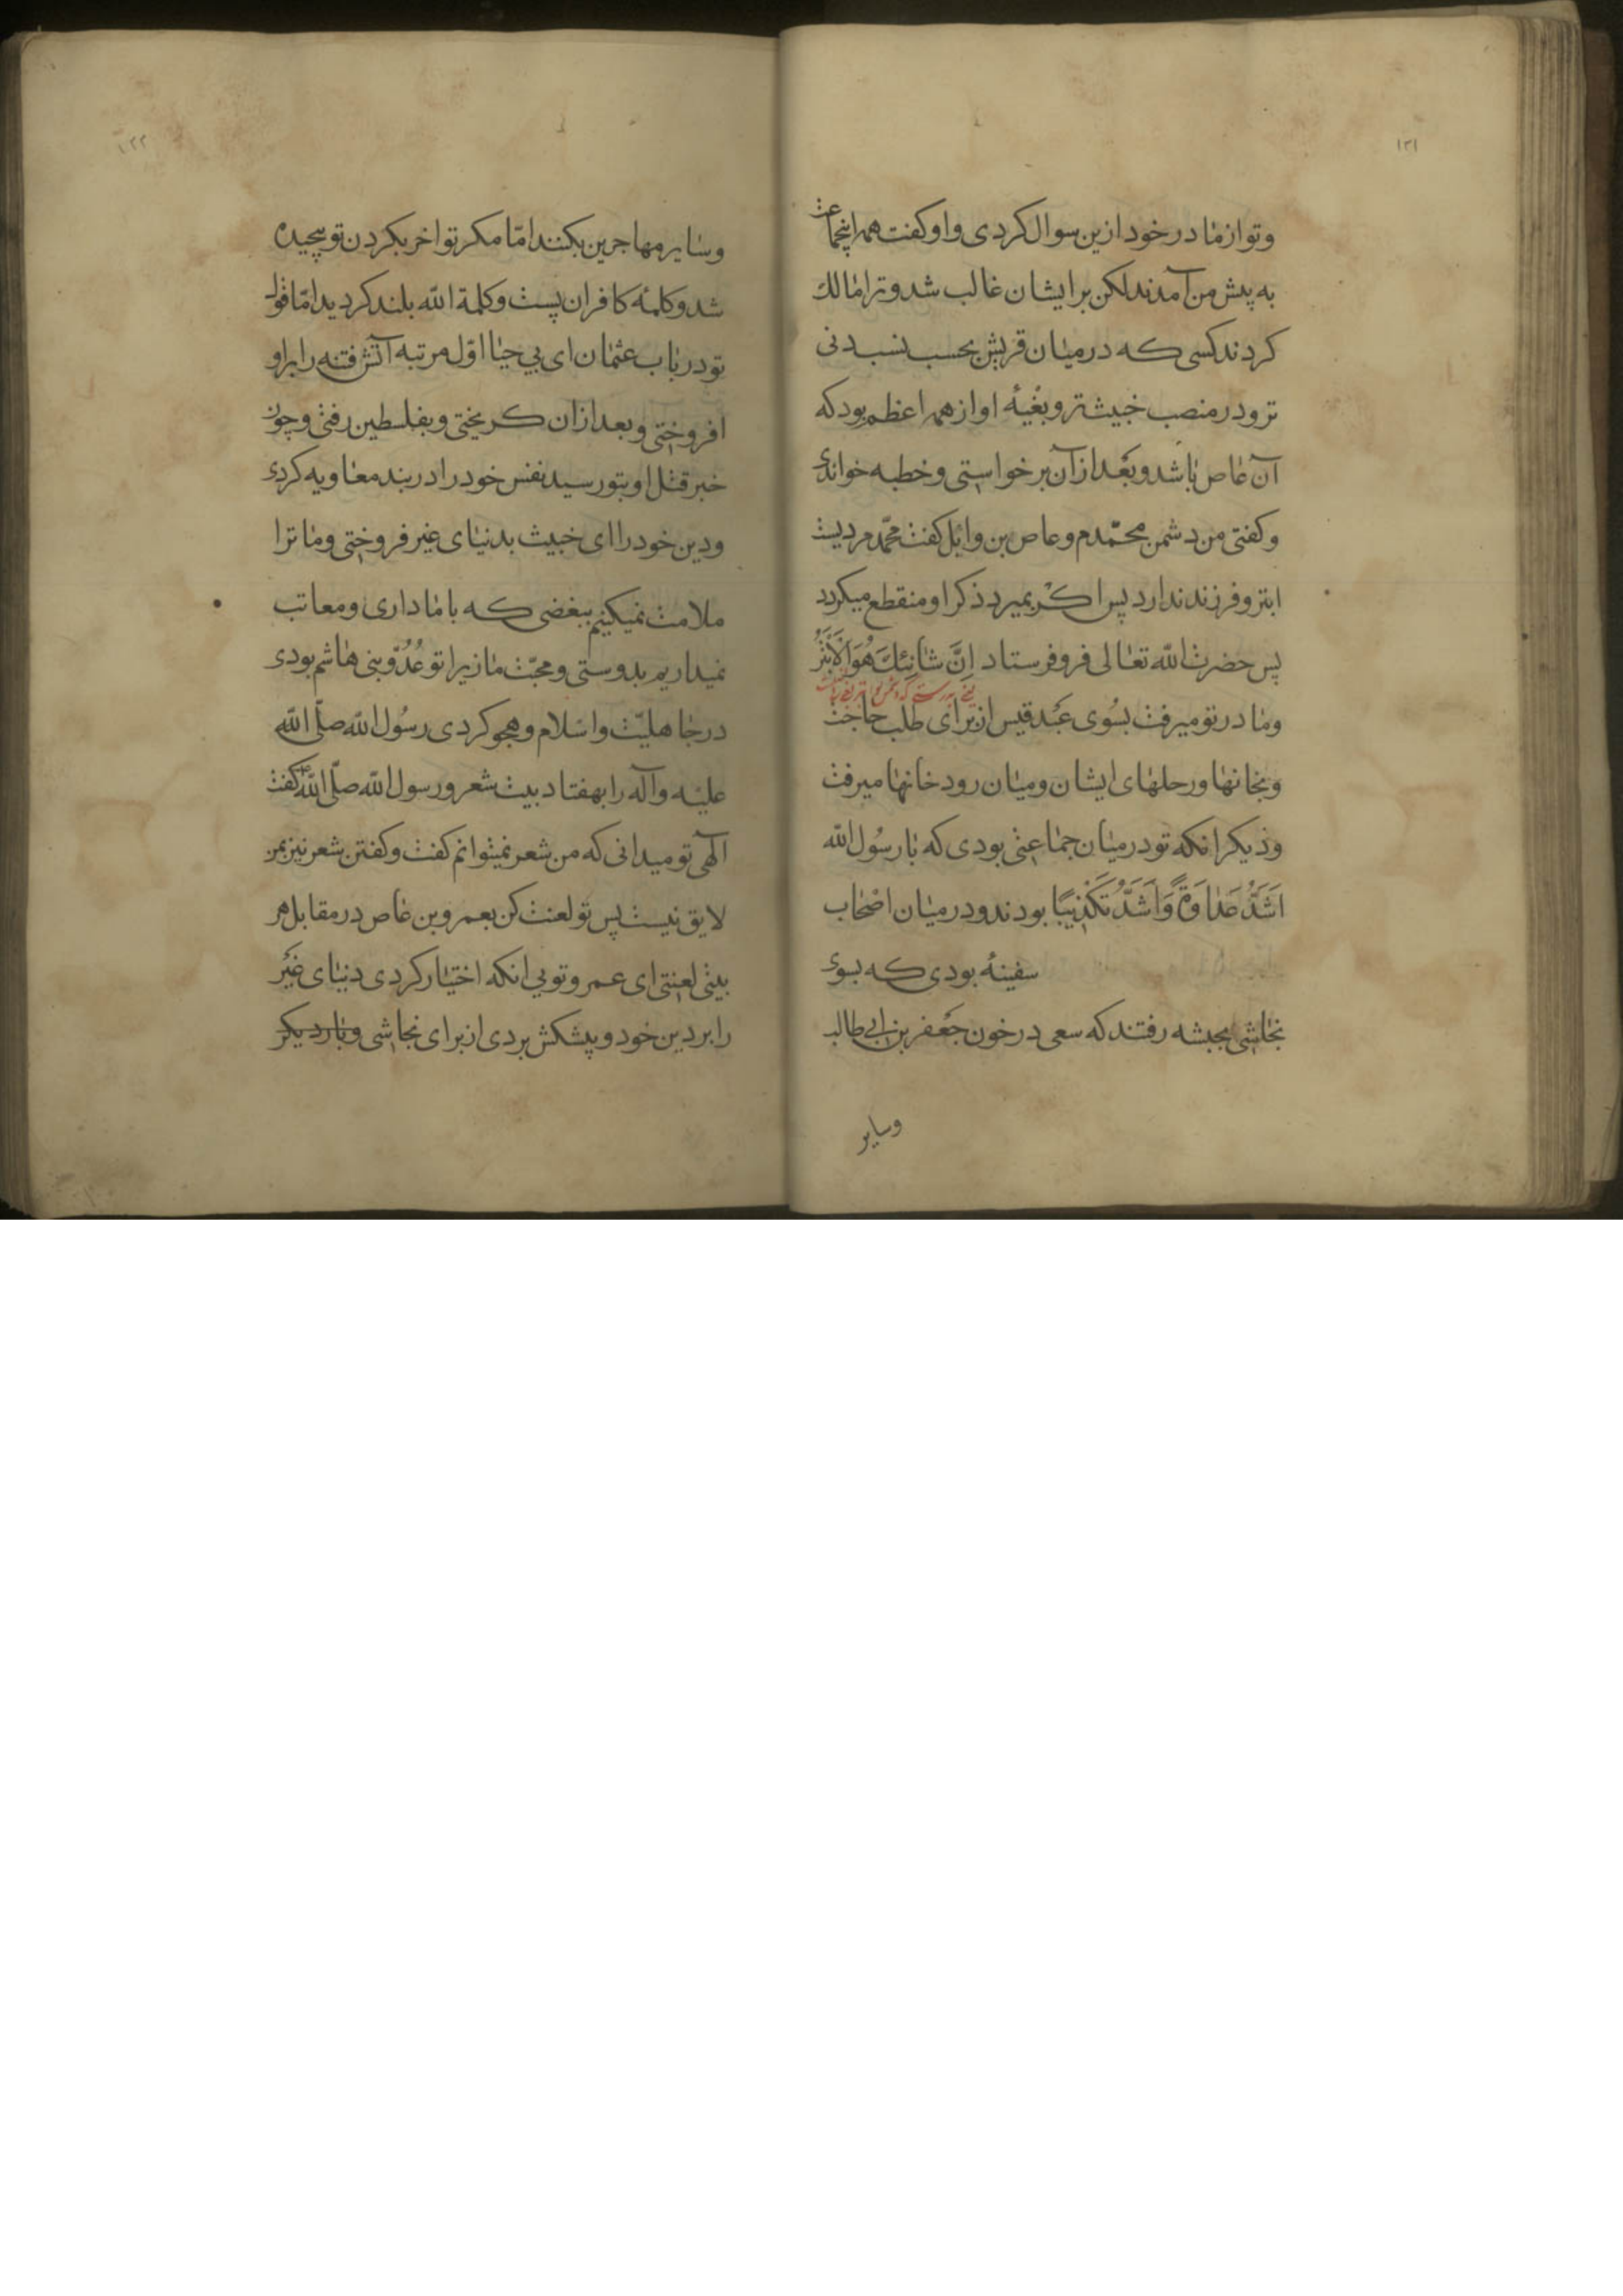 ۱۲۱
وتو از مادر خود ازین سوال کردی و او کفت همه اینجماعت
به پیش من آمدند لکن بر ایشان غالب شد و ترا مالك
کردند کسی که در میان قریش بحسب نسب دنی
تر و در منصب خبیث تر و بغیهٔ او از همه اعظم بود که
آن عاص باشد و بعد از آن برخواستی و خطبه خواندی
و کفتی من دشمن محمّدم و عاص بن وائل کفت محمّد مردیست
ابتر و فرزند ندارد پس اکر بمیرد ذکر او منقطع میکردد
پس حضرت الله تعالی فرو فرستاد اِنَّ شَانِئَكَ هُوَ الْاَبْتَرُ
یعنی بدرستی که دشمن تو ابتر
ومادر تو میرفت بسُوی عَبْد قیس از برای طلب حاجت
وبخانهٔا ورحلهای ایشان ومیان رودخانها میرفت
ودیکر انکه تو در میان جماعتی بودی که با رسُول الله
اَشَدُّ عَدَاوَةً وَاَشَدُّ تَكْذِيبًا بودند و در میان اصْحاب
سفینهٔ بودی که بسوی
نجاشی بحبشه رفتند که سعی در خون جَعْفر بن ابی طالب
وسایر
۱۲۲
وسایر مهاجرین بکنند امّا مکر تو اخر بکردن تو پیچیده
شد و کلمهٔ کافران پست و کلمة الله بلند کردید امّا قول
تو در باب عثمان ای بی حیا اوّل مرتبه آتش فتنه را بر او
افروختی و بعد ازان کریختی و بفلسطین رفتی و چون
خبر قتل او بتو رسید نفس خود را در بند معاویه کردی
ودین خود را ای خبیث بدنیای غیر فروختی وما ترا
ملامت نمیکنیم ببغضی که با ما داری و معاتب
نمیداریم بدوستی ومحبّت ما زیرا تو عُدُوّ بنی هاشم بودی
در جاهلیّت و اسْلام و هجو کردی رسُول الله صلّی الله
علیْه وآله را بهفتاد بیت شعر و رسول الله صلّی الله کفت
آلهی تو میدانی که من شعر نمیتوانم کفت و کفتن شعر نیز بمن
لایق نیست پس تو لعنت کن بعمرو بن عاص در مقابل هر
بیتی لعنتی ای عمرو تویی انکه اختیار کردی دنیای غیْر
را بر دین خود و پیشکش بردی از برای نجاشی و بار دیکر